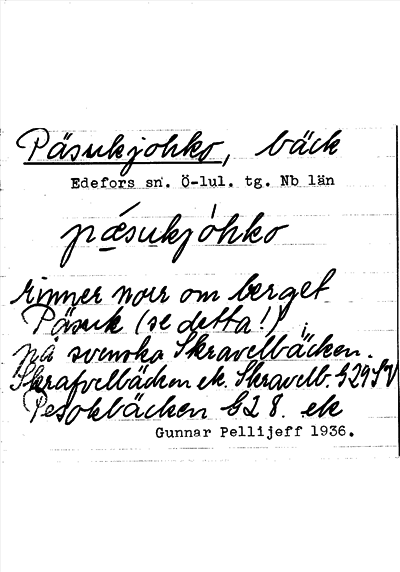 Päsukjohko, bäck
Edefors sn. Ö-lul. tg. Nb län
pǽsukjóhko
rinner norr om berget
Päsuk (se detta!);
på svenska Skravelbäcken.
Skrafvelbäcken ek. Skravelb. G29SV
Pesokbäcken G28. ek
Gunnar Pellijeff 1936.